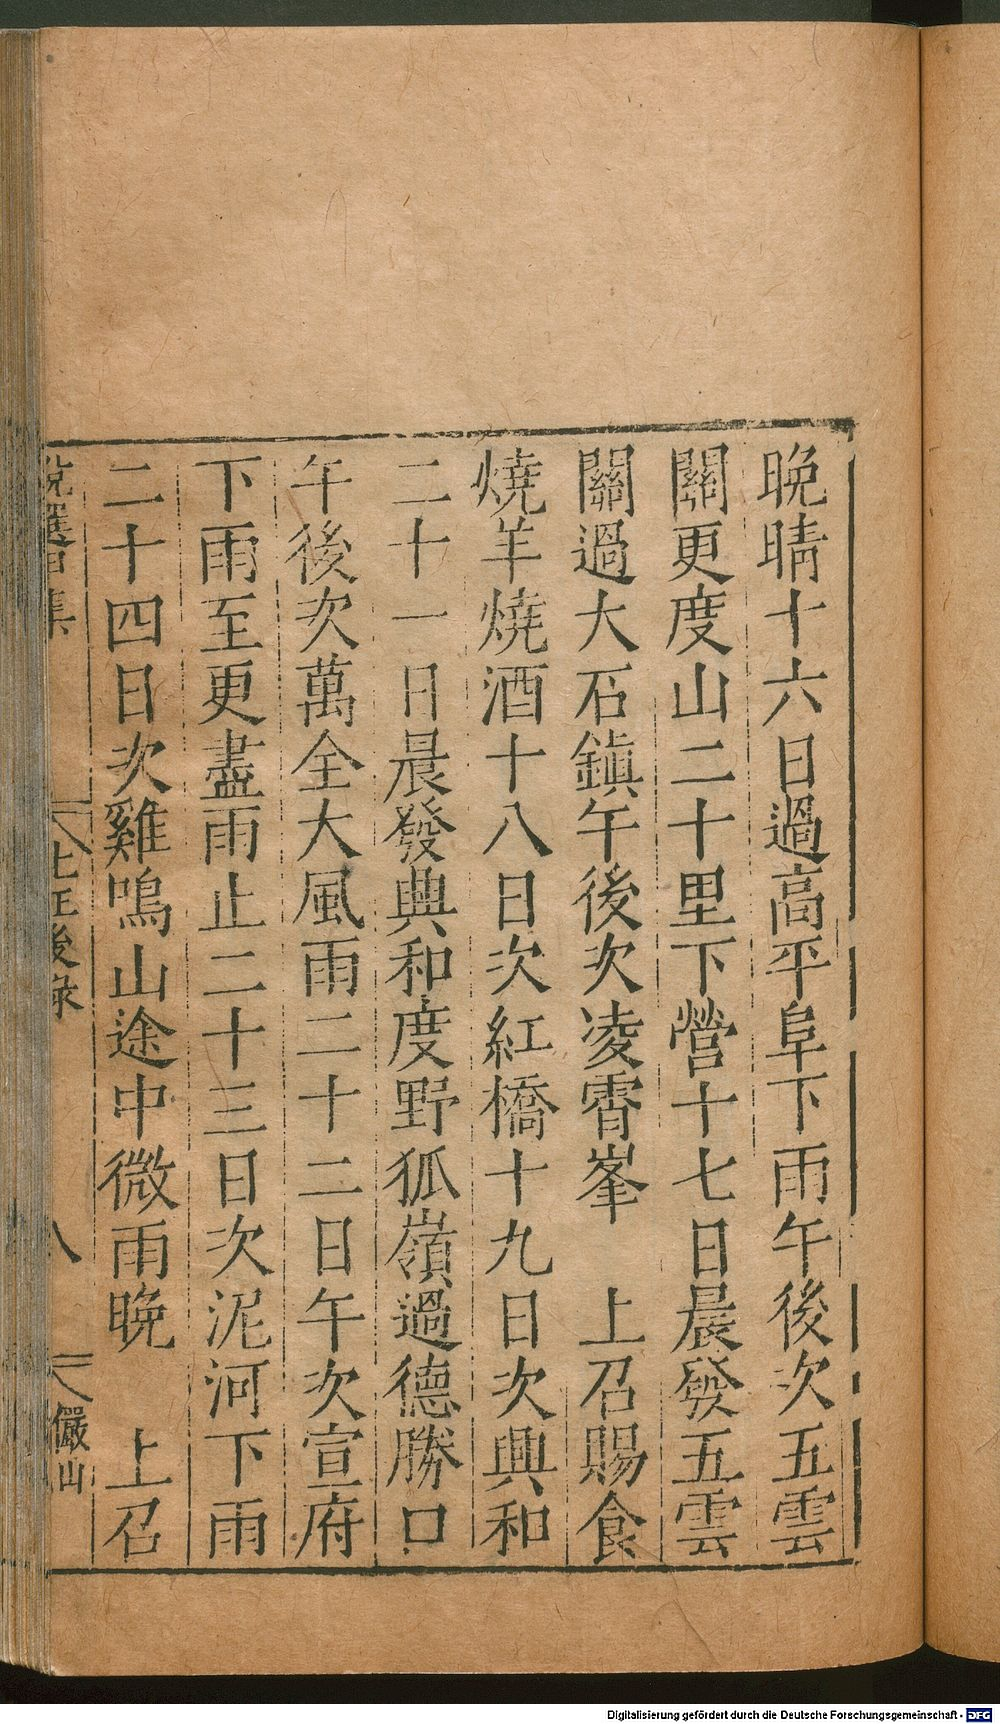 晩晴十六日過高平阜下雨午後次五雲
關更度山二十里下營十七日晨發五雲
關過大石鎮午後次凌霄峯　上召賜食
燒羊燒酒十八日次紅橋十九日次興和
二十一日晨發興和度野狐嶺過德勝口
午後次萬全大風雨二十二日午次宣府
下雨至更盡雨止二十三日次泥河下雨
二十四日次雞鳴山途中微雨晩　上召
選 集 北征後錄 八 儼山
Digitalisierung gefördert durch die Deutsche Forschungsgemeinschaft - DFG